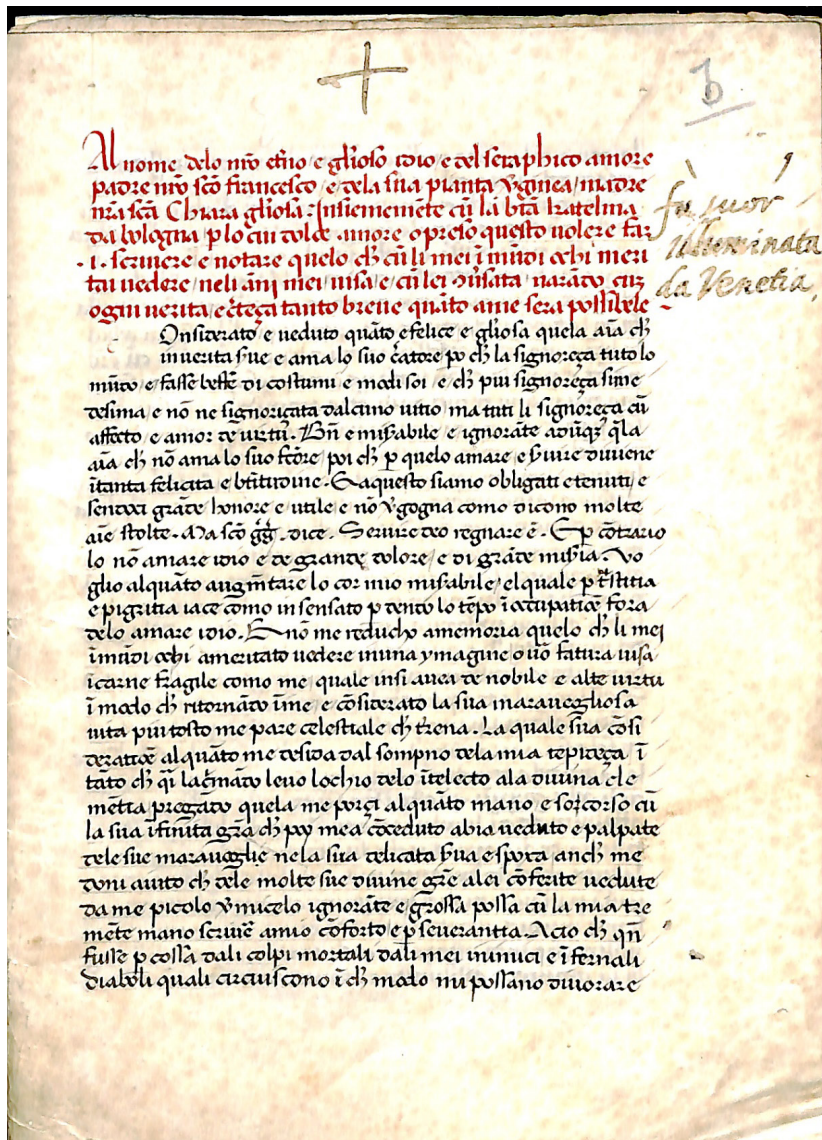 b
Al nome delo nr̄o etn̄o e gl̄ioso idio e del seraphico amore
padre nr̄o sc̄o francesco e dela sua pianta v̄ginea madre
nr̄a sc̄a Chiara gl̄iosa: Insiememēte cū la bt̄a katelina
da bologna p̱ lo cui dolce amore o preso questo volere far
.i. scrivere e notare quelo ch̄ cū li mei ī mūdi ochi meri
tai vedere neli āni mei visa e cū lei ꝯv̄sata narādo cū
ogni verita e c̄teça tanto breve quāto a me sera possibele
fù suor
illuminata
da Venetia
Onsiderato e veduto quāto e felice e gl̄iosa quela aīa ch̄
in verita s̄ve e ama lo suo c̄atore po ch̄ la signoreça tuto lo
mūdo e fasse beffe di costumi e modi soi e ch̄ piu signoreça sime
desima e nō ne signoriçata dalcuno vitio ma tuti li signoreça cū
affecto e amor de virtu. Bn̄ e mis̄abile e ignorāte adūqꝫ q̄la
aīa ch̄ nō ama lo suo fc̄ore poi ch̄ p̱ quelo amare e s̄vire diviene
ītanta felicita e bt̄itudine. E a questo siamo obligati e tenuti e
grāde honore e utile e nō v̄gogna como dicono molte
aīe stolte. Ma sc̄o gḡ. dice. Servire deo regnare ē. E p̱ cōtrario
lo nō amare idio e de grande dolore e di grāde mis̄ia. Vo
glio alquāto augm̄tare lo cor mio mis̄abile el quale p̱ tristitia
e pigritia iace como insensato p̱dendo lo tēpo ī ocupatiōe fora
delo amare idio. E nō me reducho a memoria quelo ch̄ li mei
īmūdi ochi a meritato vedere in una ymagine o v̄o fatura visa
ī carne fragile como me quale in si avea de nobile e alte virtu
ī modo ch̄ ritornādo īme e cōsiderato la sua maravegliosa
vita piu tosto me pare celestiale ch̄ t̄rena. La quale sua cōsi
deratiōe alquāto me desida dal sompno dela mia tepideça ī
tāto ch̄ q̄i lac̄mādo levo lochio delo ītelecto ala divina cle
mētia pregādo quela me porçi alquāto mano e socorso cū
la sua īfinita gr̄a ch̄ poy me a cōceduto abia veduto e palpate
dele sue maraveglie nela sua delicata s̄va e sposa anch̄ me
doni aiuto ch̄ dele molte sue divine gr̄e a lei cōferite vedute
da me picolo v̄micelo ignorāte e grossa possa cū la mia tre
mēte mano scrivē a mio cōforto e p̱severantia. Acio ch̄ qn̄
fusse p̱cossa dali colpi mortali dali mei inimici e īfernali
diaboli quali circuiscono ī ch̄ modo mi possano divorare